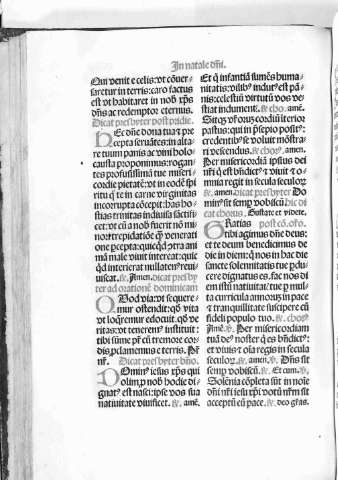 In natale dñi.
Qui venit e celis: vt cõuer-
saretur in terris: caro factus
est vt habitaret in nobis xp̃s
dñs ac redemptor eternus.
Dicat presbyter post pridie.
Hec dñe dona tua ⁊ pre
cepta seruantes: in alta
re tuum panis ac vini holo
causta proponimus: rogan-
tes profusissimã tue miseri-
cordie pietatẽ: vt in eodẽ spi
ritu q̃ te in carne virginitas
incorrupta cõcepit: has ho-
stias trinitas indiuisa sãctifi
cet: vt cũ a nobis fuerit nõ mi
nori trepidatiõe q̃ veneratiõ
one p̃cepta: quicq̃d ⁊tra ani
mã male viuit intereat: quic
q̃d interierit nullatenꝰ reui
uiscat. ℟. Amen. Dicat presbyt
ter ad orationẽ dominicam
Quod via: vt sequere
mur ostendit: qđ vita
vt loq̃remur edocuit. qđ ve
ritas: vt teneremꝰ instituit:
tibi sũme pr̃ cũ tremore cor-
dis p̃clamemus e terris. Pr̃
nr̃. Dicat presbyter bñio.
Dominꝰ iesus xp̃s qui
olimp̃ nob̃ hodie di-
gnatꝰ est nasci: ipse vos sua
natiuitate viuificet. ℟. amẽ.
Et q̃ infantiã sumẽs huma
nitatis: vilibꝰ indutꝰ est pã-
nis: celestiũ virtutũ vos ve-
stiat indument. ℟. cho. amẽ.
Sitq̃ vr̃orũ cordiũ iterior
pastus: qui in p̃sepio positꝰ:
credentibꝰ se voluit mõstra-
ri vescendus. ℟. choꝰ. amen.
Per misericordiã ipsius dei
nr̃i q̃ est bñdictꝰ ⁊ viuit ⁊ o-
mnia regit in secula seculoꝝ
℟. amen. Dicat presbyter Do
minꝰ sit semp̃ vobiscũ. hic di
cat chorus. Gustate et videte.
Gratias post cõ. oro.
tibi agimus dñe deus:
et te deum benedicimus de
die in diem: q̃ nos in hac die
sãcte solennitatis tue p̃du-
cere dignatus es. fac nos di
em istũ natiuitatꝭ tue p̃ mul
ta curricula annorũ in pace
⁊ tranquillitate suscipere cũ
fideli populo tuo. ℟. choꝰ
Amẽ. ℣. Per misericordiam
tuã deꝰ noster q̃ es bñdictꝰ:
et viuis ⁊ oĩa regis in secula
seculoꝝ. ℟. amen. ℣. Dñs sit
semp̃ vobiscũ. ℟. Et cum. ℣.
Solẽnia cõpleta sũt in noĩe
dñi nr̃i iesu xp̃i votũ nr̃m sit
acceptũ cũ pace. ℟. deo gr̃as.